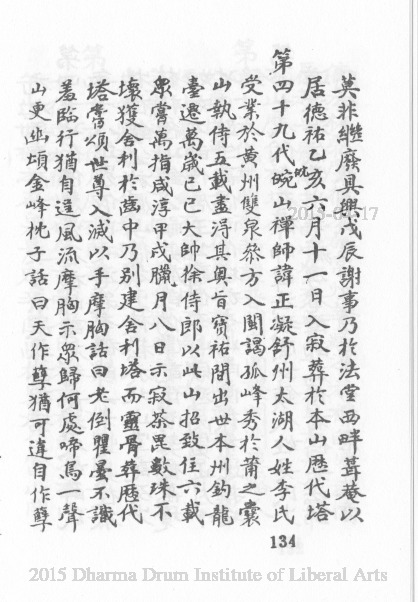 莫非繼廢具興戊辰謝事乃於法堂西畔葺菴以
居德祐乙亥六月十一日入寂葬於本山歷代塔
第四十九代皖山禪師諱正凝舒州太湖人姓李氏
受業於黃州雙泉叅方入閩謁孤峰秀於莆之囊
山執侍五載盡淂其奥旨寳祐間出世本州鈎龍
臺遷萬歲己巳大帥徐侍郎以此山招致住六載
眾嘗萬指咸淳甲戍臘月八日示寂荼毘數珠不
壞獲舍利於齒中乃别建舍利塔而靈骨葬歷代
塔嘗頌世尊入滅以手摩胸話曰老倒瞿曇不識
羞臨行猶自逞風流摩胸示眾歸何處啼鳥一聲
山更幽頌金峰枕子話曰天作孽猶可違自作孽
134
2015-04-17
2015 Dharma Drum Institute of Liberal Arts